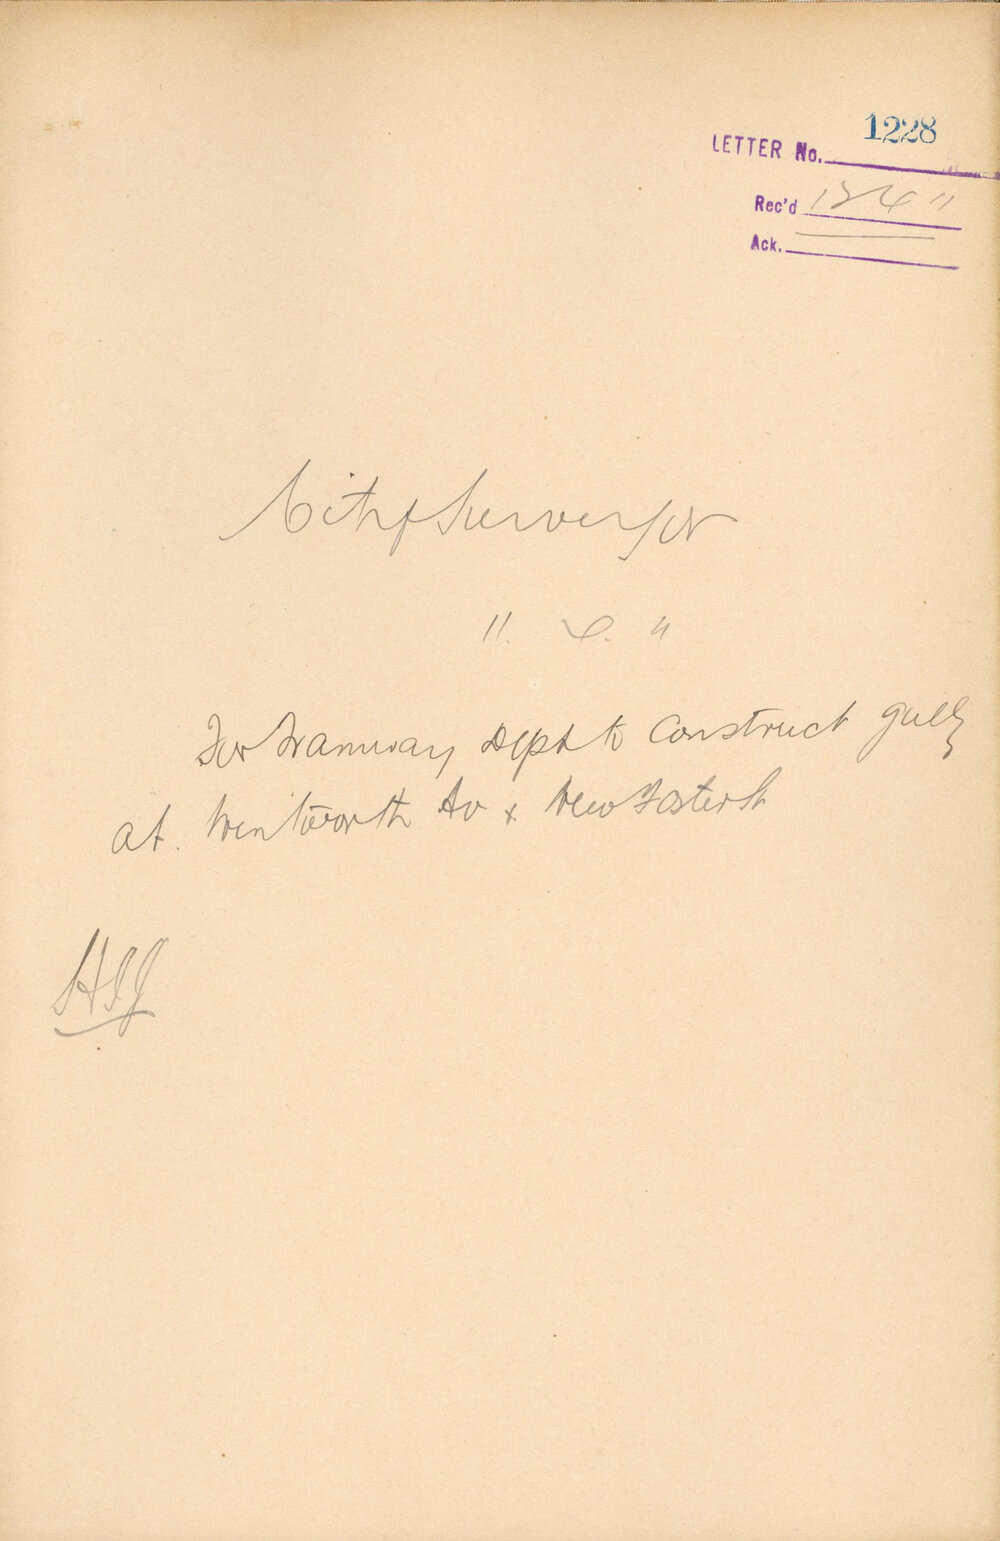 1228
LETTER No.
Rec'd 12 4 "
Ack.
City Surveyor
11. 4. "
For Tramway Dept to Construct gully
at. Wentworth Av & New Foster St